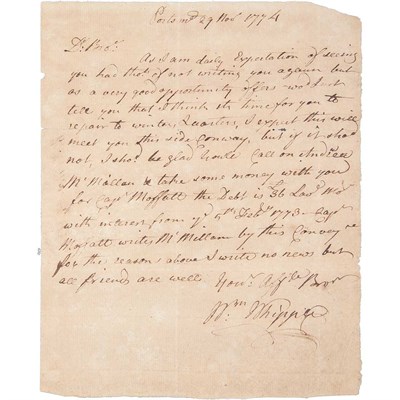 Portsmo 29 Nov 1774
Dr Bror
As I am daily Expectation of seeing
you had thot of not writing you again but
as a very good opportunity offers
tell you that I think its time for you to
repair to winter Quarters, I expect this will
meet you this side Conway, but if it shod
not, I shod be glad youle Call on
Mr Millan & take some money with you
for Capt Moffatt the Debt is £36 Law Mo
with interest from ye 5th Feby 1773. Capt
Moffatt writes Mr Millan by this Conveyce
for the reason above I write no news but
all friends are well Your Affte Bror
Wm Whipple